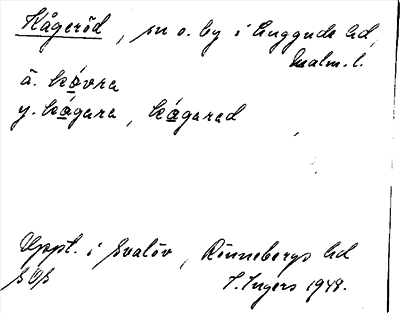 Kågeröd, sn o. by i Luggude hd,
Malm. l.
ä. kóvra
y. kágara, kágarad
Uppt. i Svalöv, Rönnebergs hd
I. Ingers 1948.